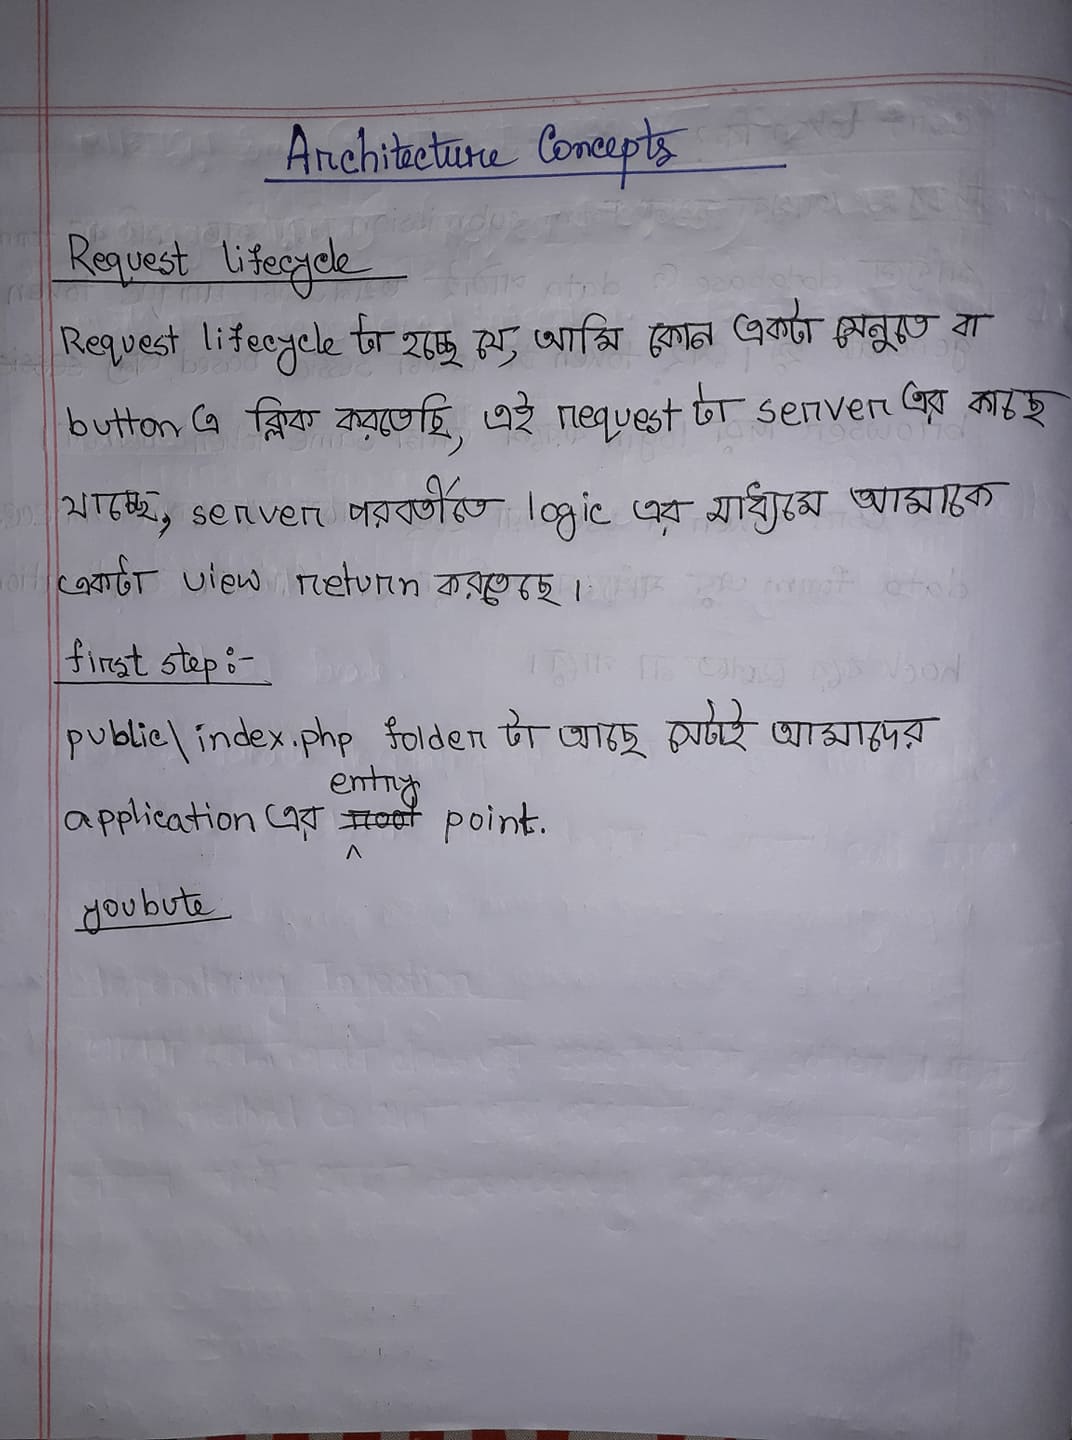 Architecture Concepts
Request lifecycle
Request lifecycle টা হচ্ছে যে, আমি কোন একটা মেনুতে বা
button এ ক্লিক করতেছি, এই request টা server এর কাছে
যাচ্ছে, server পরবর্তীতে logic এর মাধ্যমে আমাকে
একটা view return করতেছে।
first step :-
public\index.php folder টা আছে সেটাই আমাদের
entry
application এর root point.
youbute